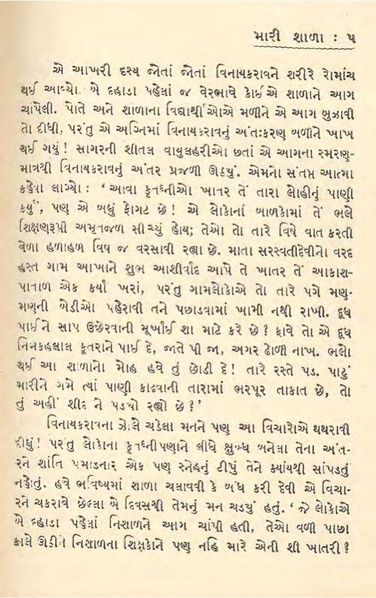 મારી શાળા : ૫
એ આખરી દશ્ય જોતાં જોતાં વિનાયકરાવને શરીરે રોમાંચ
થઈ આવ્યો. એ દહાડા પહેલાં જ વેરભાવે કોઈએ શાળાને આગ
ચાંપેલી. પોતે અને શાળાના વિદ્યાર્થીઓએ મળીને એ આગ બુઝાવી
તો દીધી, પરંતુ એ અગ્નિમાં વિનાયકરાવનું અંતઃકરણ બળીને ખાખ
થઈ ગયું! સાગરની શીતલ વાયુલહરીઓ છતાં એ આગના સ્મરણ-
માત્રથી વિનાયકરાવનું અંતર પ્રજળી ઊઠયું. એમનો સંતપ્ત આત્મા
કહેવા લાગ્યો : ‘આવા કૃતઘ્નીઓ ખાતર તેં તારા લોહીનું પાણી
કર્યું, પણ એ બધું ફોગટ છે! એ લોકોનાં બાળકોમાં તેં ભલે
શિક્ષણરૂપી અમૃતજળ સીંચ્યું હોય; તેઓ તો તારે વિષે વાત કરતી
વેળા હળાહળ વિષ જ વરસાવી રહ્યા છે. માતા સરસ્વતીદેવીનો વરદ
હસ્ત ગામ આખાને શુભ આશીર્વાદ આપે તે ખાતર તેં આકાશ-
પાતાળ એક કર્યાં ખરાં, પરંતુ ગામલોકોએ તો તારે પગે મણ-
મણની બેડીઓ પહેરાવી તને પછાડવામાં ખામી નથી રાખી. દૂધ
પાઈને સાપ ઉછેરવાની મૂર્ખાઈ શા માટે કરે છે? ફાવે તો એ દૂધ
નિમકહલાલ કૂતરાને પાઈ દે, જાતે પી જા, અગર ઢોળી નાખ. ભલો
થઈ આ શાળાનો મોહ હવે તું છોડી દે! તારે રસ્તે પડ. પાટું
મારીને ગમે ત્યાં પાણી કાઢવાની તારામાં ભરપૂર તાકાત છે, તો
તું અહીં શીદ ને પડયો રહ્યો છે?’
વિનાયકરાવના ઝોલે ચડેલા મનને પણ આ વિચારોએ થથરાવી
દીધું! પરંતુ લોકોના કૃતઘ્નીપણાને લીધે ક્ષુબ્ધ બનેલા તેના અંત-
રને શાંતિ પમાડનાર એક પણ સ્નેહનું ટીપું તેને ક્યાંયથી સાંપડતું
નહોતું. હવે ભવિષ્યમાં શાળા ચલાવવી કે બંધ કરી દેવી એ વિચા-
રને ચકરાવે છેલ્લા બે દિવસથી તેમનું મન ચડયું હતું. ‘જે લોકોએ
બે દહાડા પહેલાં નિશાળને આગ ચાંપી હતી, તેઓ વળી પાછા
કાલે ઊઠીને નિશાળના શિક્ષકોને પણ નહિ મારે એની શી ખાતરી?